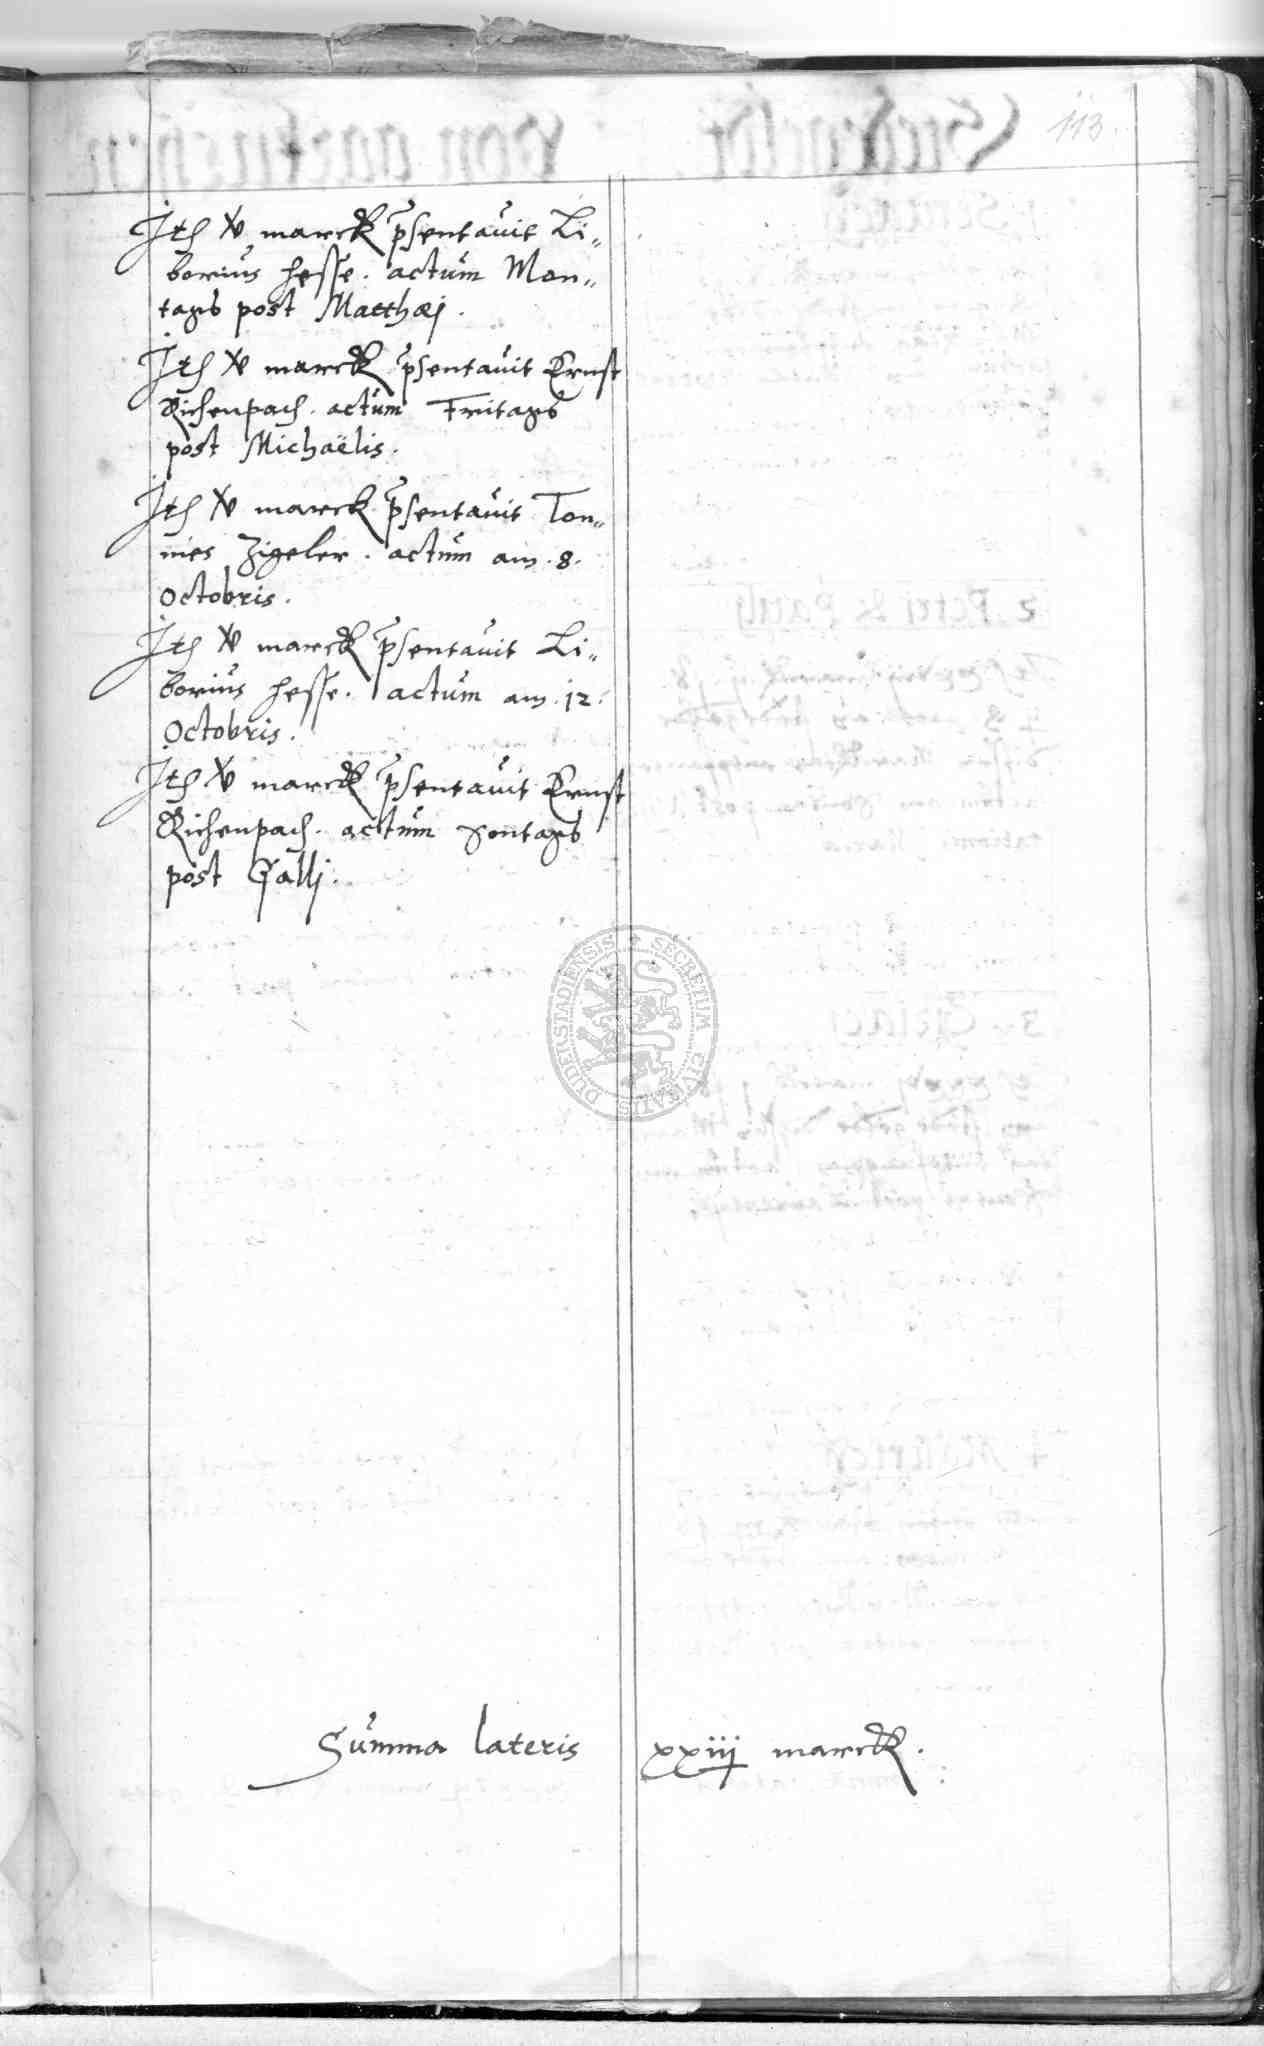 113
Jtē v marck pſentauit Li„
borius Heſſe. actum Mon„
tags post Matthæj.
Jtē v marck pſentauit Ernſt
Richenpach. actum Fritags
post Michaëlis.
Jtē v marck pſentauit Ton„
nies Zigeler. actum am .8.
Octobris.
Jtē v marck pſentauit Li„
borius Heſſe. actum am .12.
Octobris.
Jtē v marck pſentauit Ernſt
Richenpach. actum Sontags
post Gallj.
SECRETUM CIVITATIS DUDERSTADIENSIS
Summa lateris xxiij marck.